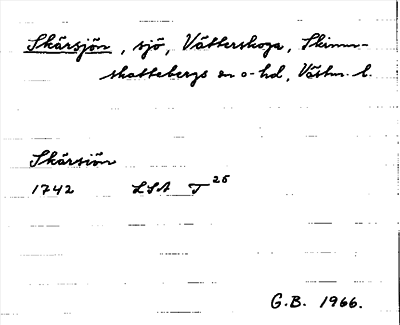 Skärsjön, sjö, Vätterskoga, Skinn-
skattebergs sn o-hd, Västm. l.
Skärsiön
1742 LSA T 26
G.B. 1966.